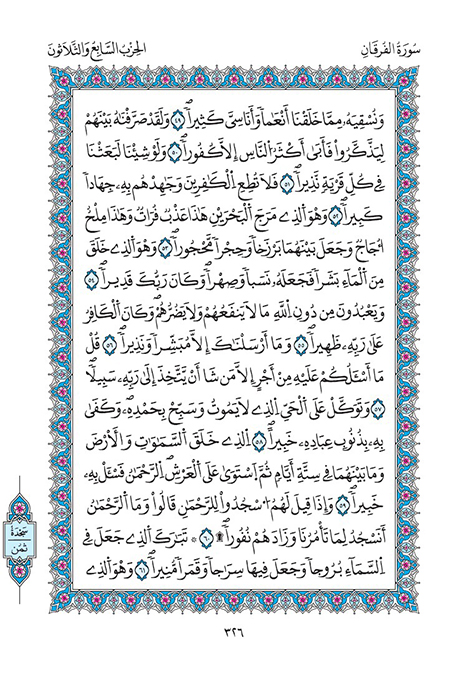 سُورَةُ الفُرْقَانِ
الحِزْبُ السَّابِعُ وَالثَّلَاثُونَ
وَنُسْقِيَهُۥ مِمَّا خَلَقْنَآ أَنْعَٰماً وَأَنَاسِىَّ كَثِيراٗۖ ٤٩ وَلَقَدْ صَرَّفْنَٰهُ بَيْنَهُمْ
لِيَذَّكَّرُواْۖ فَأَبَىٰٓ أَكْثَرُ النَّاسِ إِلَّا كُفُوراٗۖ ٥٠ وَلَوْ شِئْنَا لَبَعَثْنَا
فِے كُلِّ قَرْيَةٍ نَّذِيراٗۖ ٥١ فَلَا تُطِعِ اِلْكَٰفِرِينَ وَجَٰهِدْهُم بِهِۦ جِهَاداٗ
كَبِيراٗۖ ٥٢ وَهُوَ اَلذِے مَرَجَ اَلْبَحْرَيْنِ هَٰذَا عَذْبٌ فُرَاتٌ وَهَٰذَا مِلْحٌ
اُجَاجٌ وَجَعَلَ بَيْنَهُمَا بَرْزَخاٗ وَحِجْراٗ مَّحْجُوراٗۖ ٥٣ وَهُوَ اَلذِے خَلَقَ
مِنَ اَلْمَآءِ بَشَراٗ فَجَعَلَهُۥ نَسَباٗ وَصِهْراٗۖ وَكَانَ رَبُّكَ قَدِيراٗۖ ٥٤
وَيَعْبُدُونَ مِن دُونِ اِللَّهِ مَا لَا يَنفَعُهُمْ وَلَا يَضُرُّهُمْۖ وَكَانَ اَلْكَافِرُ
عَلَىٰ رَبِّهِۦ ظَهِيراٗۖ ٥٥ وَمَآ أَرْسَلْنَٰكَ إِلَّا مُبَشِّراٗ وَنَذِيراٗۖ ٥٦ قُلْ
مَآ أَسْـَٔلُكُمْ عَلَيْهِ مِنْ أَجْرٍ اِلَّا مَن شَآءَ انْ يَّتَّخِذَ إِلَىٰ رَبِّهِۦ سَبِيلاٗۖ
٥٧ وَتَوَكَّلْ عَلَى اَلْحَيِّ اِلذِے لَا يَمُوتُ وَسَبِّحْ بِحَمْدِهِۦۖ وَكَفَىٰ
بِهِۦ بِذُنُوبِ عِبَادِهِۦ خَبِيراٗۖ ٥٨ اِلذِے خَلَقَ اَلسَّمَٰوَٰتِ وَالْأَرْضَ
وَمَا بَيْنَهُمَا فِے سِتَّةِ أَيَّامٍ ثُمَّ اَسْتَوَىٰ عَلَى اَلْعَرْشِۖ اِلرَّحْمَٰنُ فَسْـَٔلْ بِهِۦ
خَبِيراٗۖ ٥٩ وَإِذَا قِيلَ لَهُمُ اُسْجُدُواْ لِلرَّحْمَٰنِ قَالُواْ وَمَا اَلرَّحْمَٰنُ
أَنَسْجُدُ لِمَا تَأْمُرُنَا وَزَادَهُمْ نُفُوراٗۖ ۩ ٦٠ تَبَٰرَكَ اَلذِے جَعَلَ فِے
اِلسَّمَآءِ بُرُوجاٗ وَجَعَلَ فِيهَا سِرَٰجاٗ وَقَمَراٗ مُّنِيراٗۖ ٦١ وَهُوَ اَلذِے
سَجْدَةٌ
ثُمُن
٣٢٦